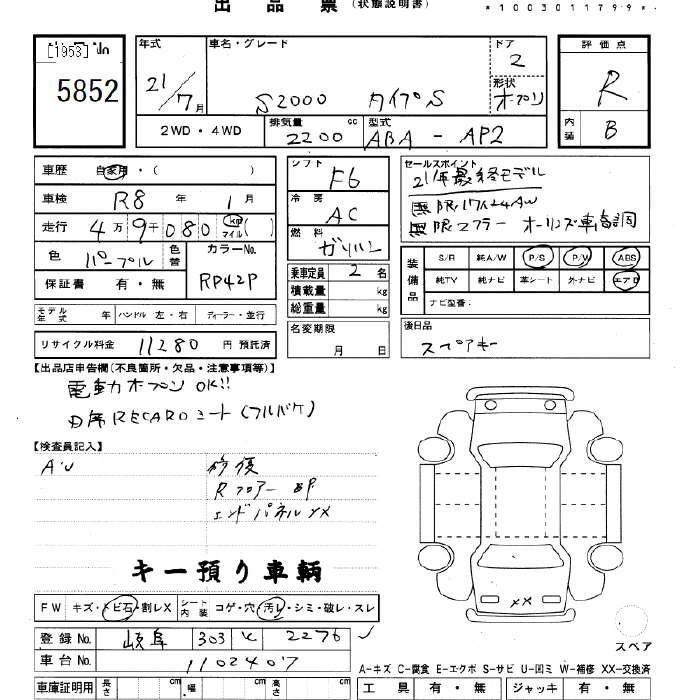 出品票 (状態説明書)
*1003011799*
[1953] No. 5852
年式 21/7月
車名・グレード S2000 タイプS
ドア 2
形状 オープン
評価点 R
内装 B
2WD・4WD
排気量 2200 cc
型式 ABA - AP2
車歴 自家用・( )
車検 R8年 1月
走行 4万9千080 km マイル ( )
色 パープル 色替
カラーNo. RP42P
保証書 有・無
モデル年式 年 ハンドル 左・右 ディーラー・並行
リサイクル料金 11280 円 預託済
シフト F6
冷房 AC
燃料 ガソリン
乗車定員 2名
積載量 kg
総重量 kg
名変期限 月 日
セールスポイント
21年最終モデル
無限17インチAW
無限マフラー オーリンズ車高調
装備品 S/R 純A/W P/S P/W ABS
純TV 純ナビ 革シート 外ナビ エアB
ナビ型番:
後日品
スペアキー
【出品店申告欄(不良箇所・欠品・注意事項等)】
電動オープンOK!!
D席RECAROシート(フルバケ)
【検査員記入】
AU 修復
Rフロアー
エンドパネルXX
キー預り車輌
FW キズ・トビ石・割レX シート内装 コゲ・穴・汚レ・シミ・破レ・スレ
XX
スペア
登録No. 岐阜 303 2276
車台No. 1102407
A-キズ C-腐食 E-エクボ S-サビ U-凹ミ W-補修 XX-交換済
車庫証明用 長さ cm 幅 cm 高さ cm
工具 有・無 ジャッキ 有・無